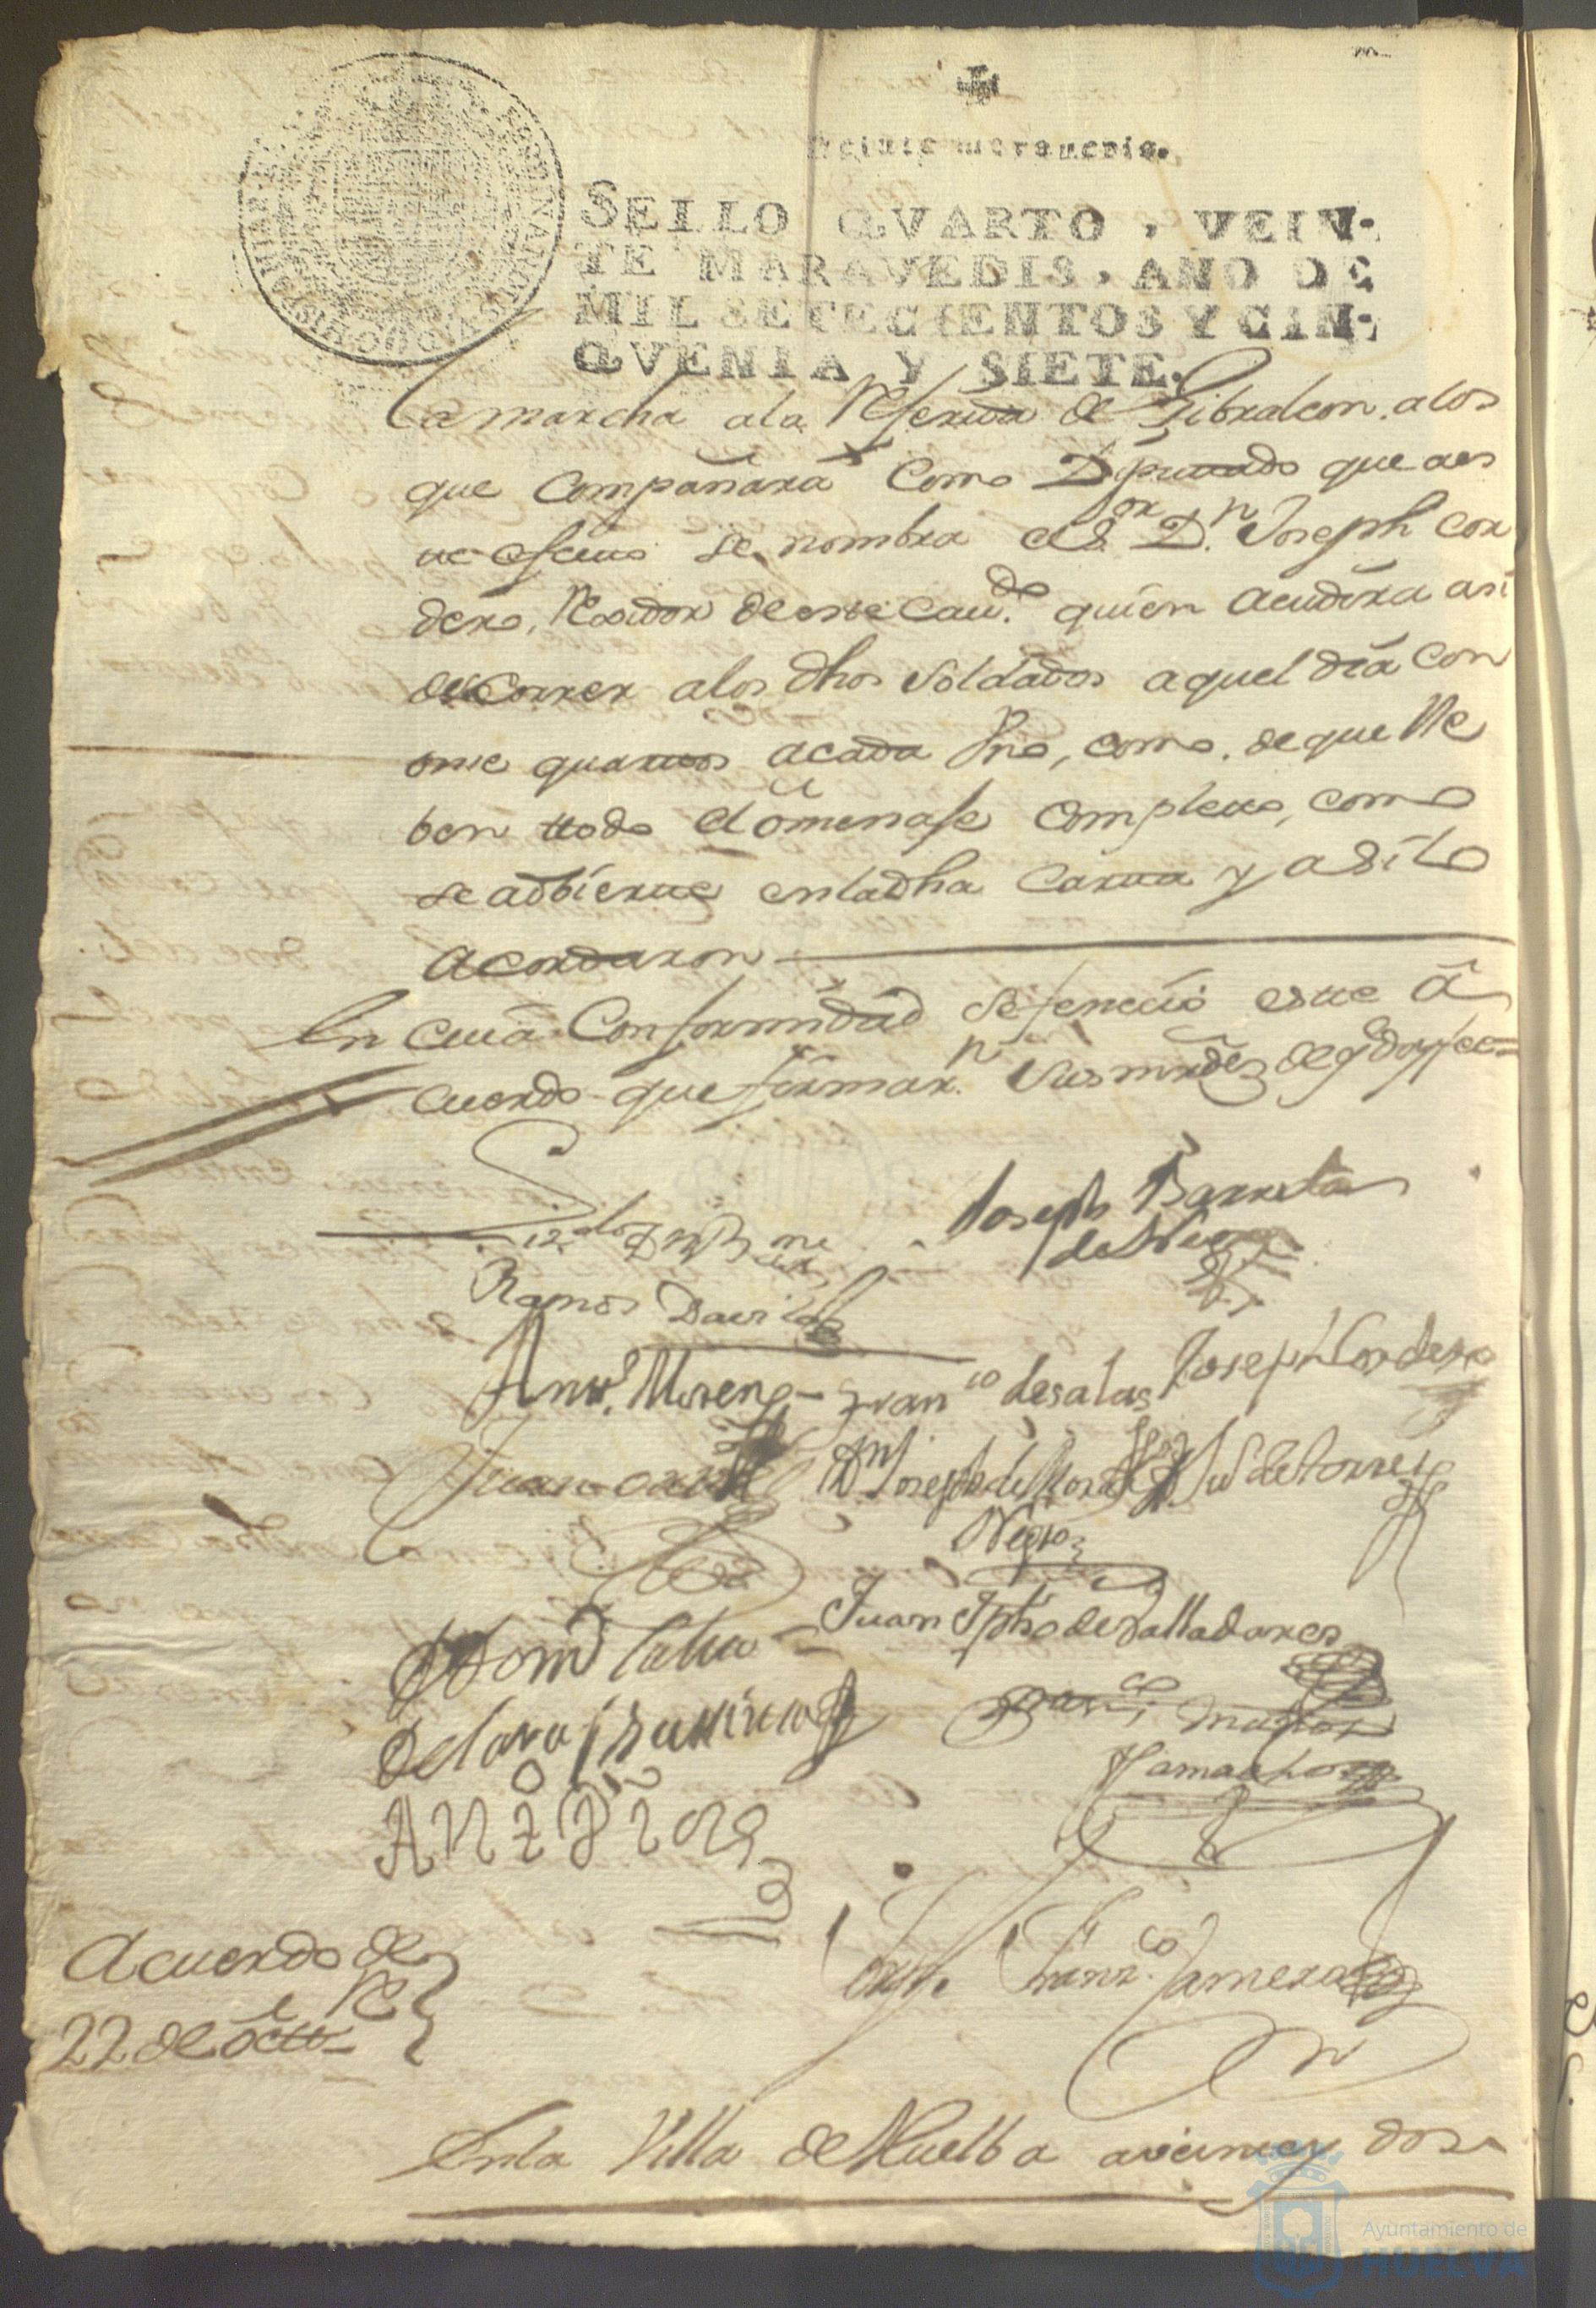 Veinte maravedis.
SELLO QVARTO, VEIN-
TE MARAVEDIS, AÑO DE
MIL SETECIENTOS Y CIN-
QVENTA Y SIETE.
la marcha ala Referida de Gibraleon. alos
que Compañara Como Diputado que aes
te efecto se nombra el S.or D.n Joseph Cor
dero, Rexidor de este Cau.do quien acudira asi
de socorrer alos dhos Soldados aquel dia con
onse quartos acada Vno, como, de que lle
ben ttodo el omenase Completto, como
se adbierte enladha Carta y asilo
acordaron
En cuia Conformidad Sefenecio este a
cuerdo que firmar.n Sus mrdes de q doy fee=
Joseph Barreta
de
Ramos Davila
Antt.o Moreno
Fran.co desalas
Joseph Cordero
Juan
D.n Joseph de Mora
Negro
de torres
Juan Ipto de Valladares
Dom.o
Fran.co Muños
Camacho
Franz.co Jamera
Acuerdo de
22 de octt.e
Enla Villa de Huelba aveintey dos
Ayuntamiento de
HUELVA